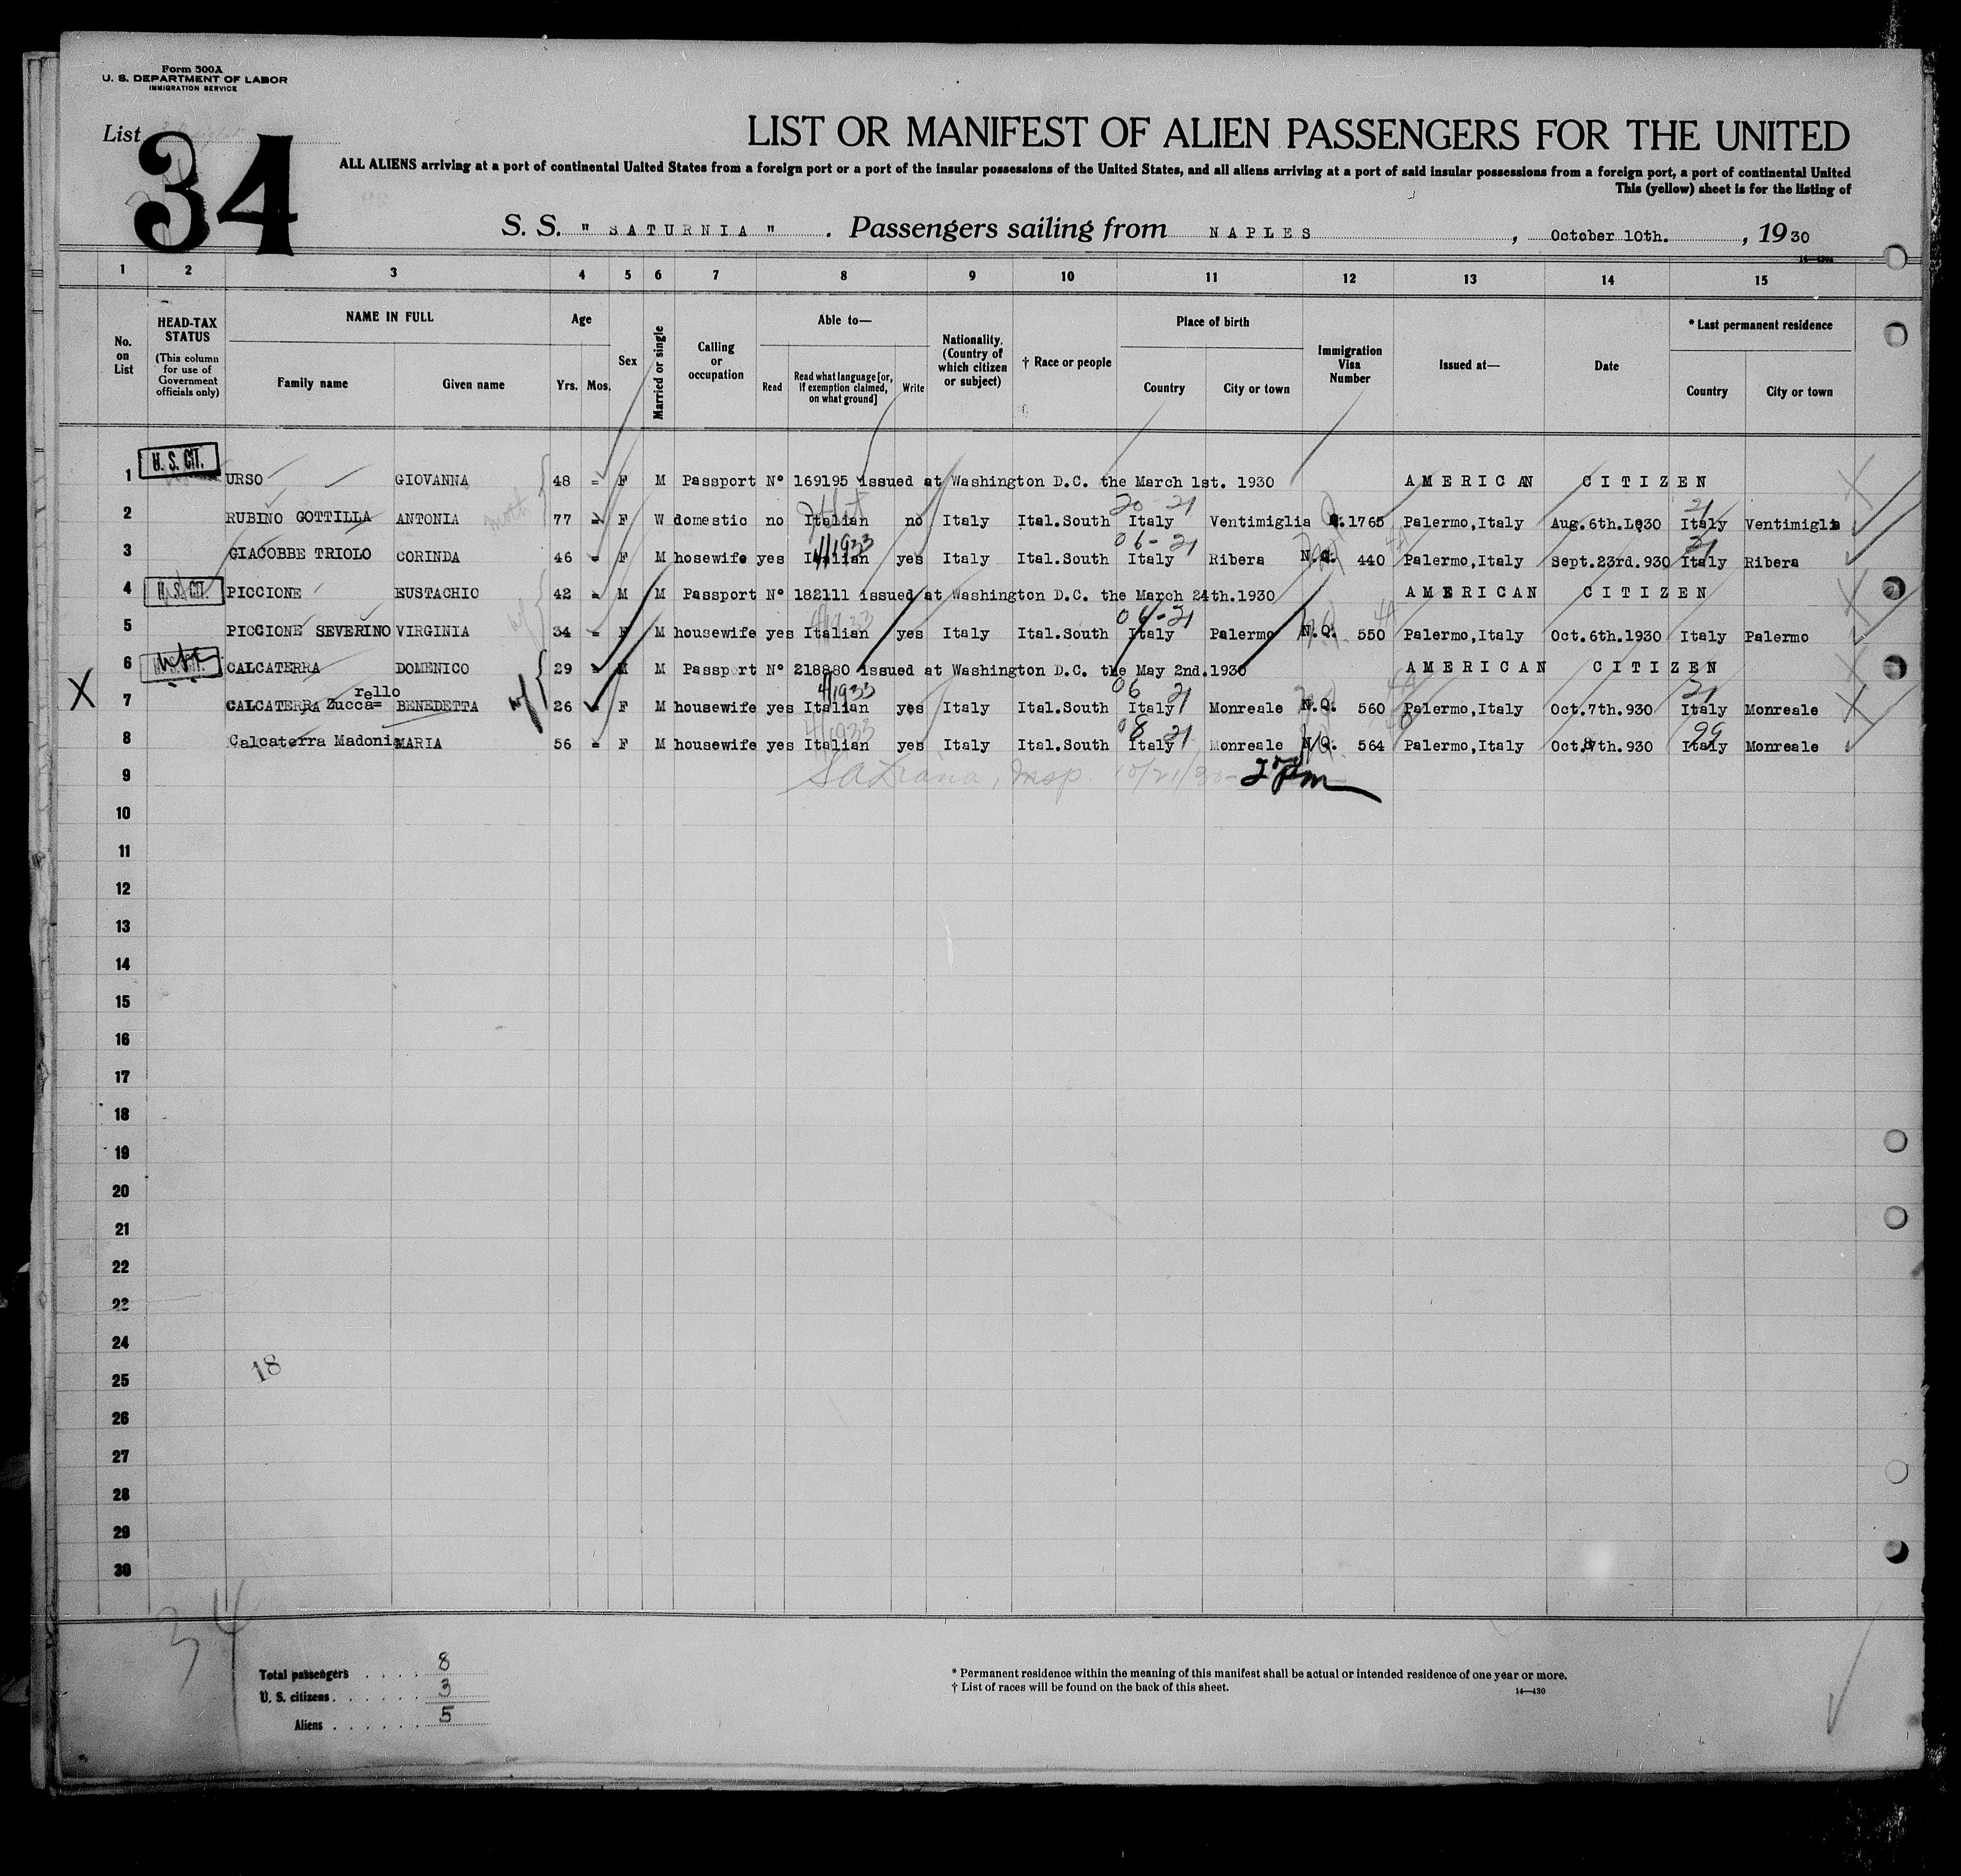 Form 500A
U. S. DEPARTMENT OF LABOR
IMMIGRATION SERVICE
List 34
LIST OR MANIFEST OF ALIEN PASSENGERS FOR THE UNITED
ALL ALIENS arriving at a port of continental United States from a foreign port or a port of the insular possessions of the United States, and all aliens arriving at a port of said insular possessions from a foreign port, a port of continental United
This (yellow) sheet is for the listing of
S. S. " SATURNIA " . Passengers sailing from NAPLES , October 10th. , 1930
1 2 3 4 5 6 7 8 9 10 11 12 13 14 15
No. on List
HEAD-TAX STATUS
(This column for use of Government officials only)
NAME IN FULL
Family name Given name
Age
Yrs. Mos.
Sex
Married or single
Calling or occupation
Able to—
Read
Read what language [or, if exemption claimed, on what ground]
Write
Nationality. (Country of which citizen or subject)
† Race or people
Place of birth
Country City or town
Immigration Visa Number
Issued at—
Date
* Last permanent residence
Country City or town
1 U. S. CIT. URSO GIOVANNA 48 = F M Passport Nº 169195 issued at Washington D.C. the March 1st. 1930 AMERICAN CITIZEN
20 21 21
2 RUBINO GOTTILLA ANTONIA 77 = F W domestic no Italian no Italy Ital.South Italy Ventimiglia 1765 Palermo,Italy Aug.6th.1930 Italy Ventimiglia
4/1933 06-21 21
3 GIACOBBE TRIOLO CORINDA 46 = F M hosewife yes Italian yes Italy Ital.South Italy Ribera N.Q. 440 Palermo,Italy Sept.23rd.930 Italy Ribera
4 U. S. CIT. PICCIONE EUSTACHIO 42 = M M Passport Nº 182111 issued at Washington D.C. the March 24th.1930 AMERICAN CITIZEN
4/1933 06-21
5 PICCIONE SEVERINO VIRGINIA 34 = F M housewife yes Italian yes Italy Ital.South Italy Palermo N.Q. 550 Palermo,Italy Oct.6th.1930 Italy Palermo
6 CALCATERRA DOMENICO 29 = M M Passport Nº 218880 issued at Washington D.C. the May 2nd.1930 AMERICAN CITIZEN
rello 4/1933 06 21 21
X 7 CALCATERRA Zucca= BENEDETTA 26 F M housewife yes Italian yes Italy Ital.South Italy Monreale N.Q. 560 Palermo,Italy Oct.7th.930 Italy Monreale
4/1933 08 21 99
8 Calcaterra Madonia MARIA 56 = F M housewife yes Italian yes Italy Ital.South Italy Monreale N.Q. 564 Palermo,Italy Oct.8th.930 Italy Monreale
9 Insp. 10/21/30
10
11
12
13
14
15
16
17
18
19
20
21
22
22
24
18
25
26
27
28
29
30
34
Total passengers . . . . 8
U. S. citizens . . . . . . 3
Aliens . . . . . . 5
* Permanent residence within the meaning of this manifest shall be actual or intended residence of one year or more.
† List of races will be found on the back of this sheet.
14—430